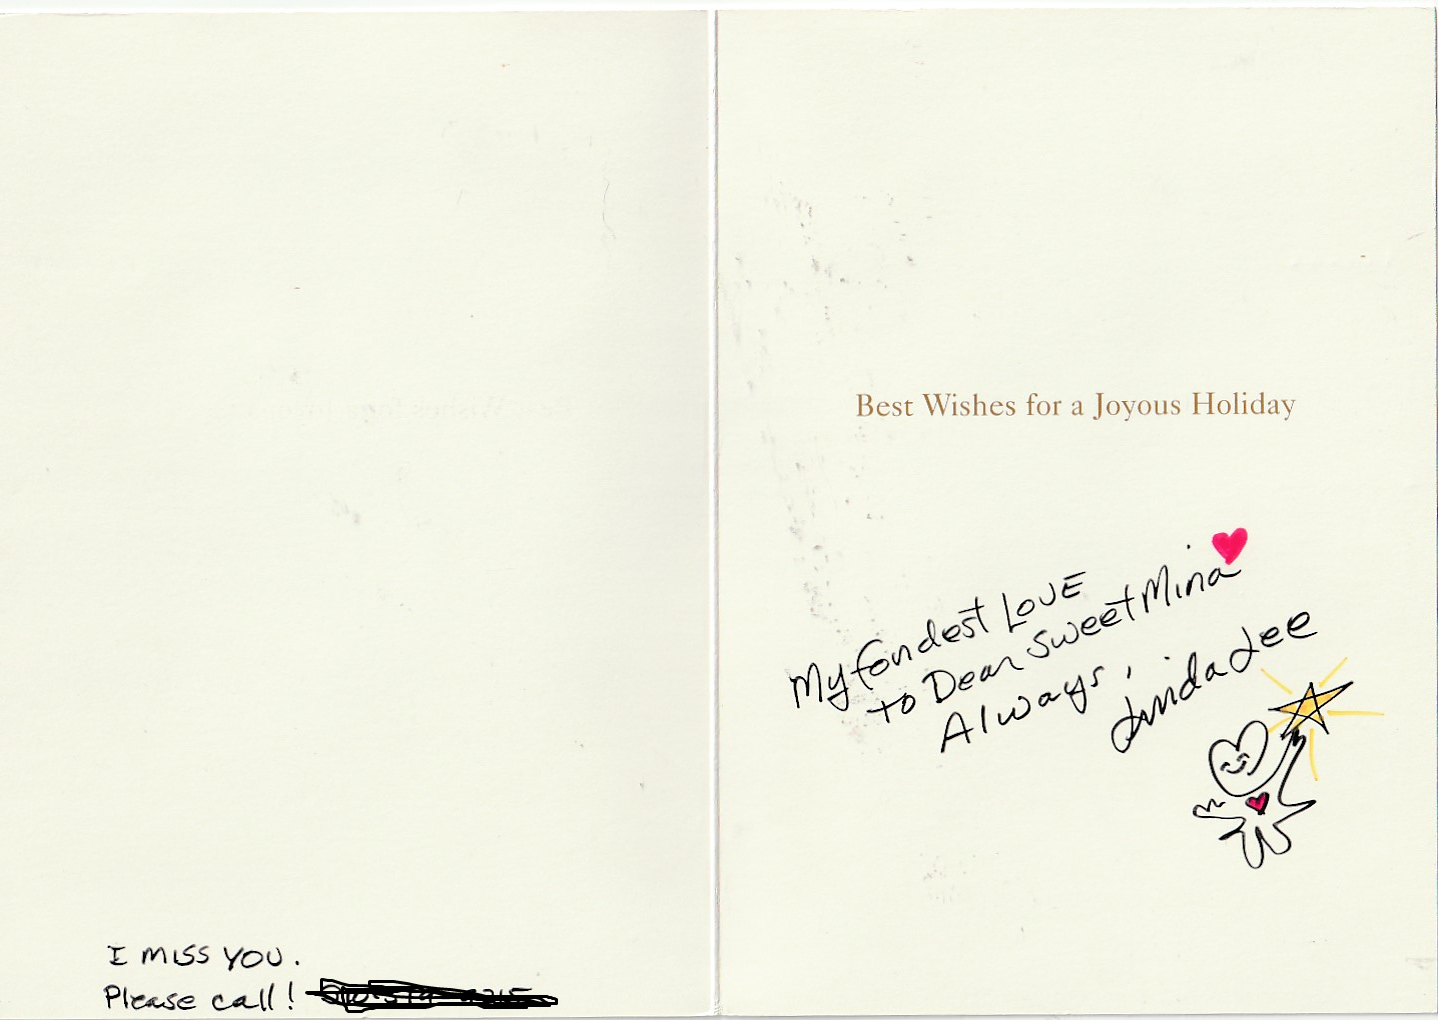 I MISS YOU.
Please call!
Best Wishes for a Joyous Holiday
My fondest LOVE
to Dear Sweet Mina
Always,
Linda Lee